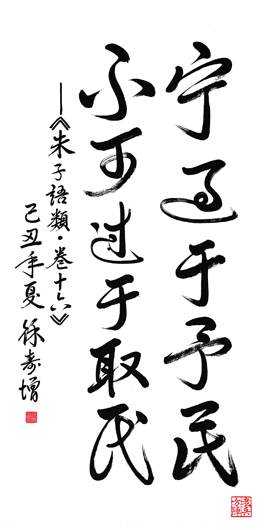 宁过于予民
不可过于取民
——《朱子語類·卷十六》
己丑年夏 徐寿增